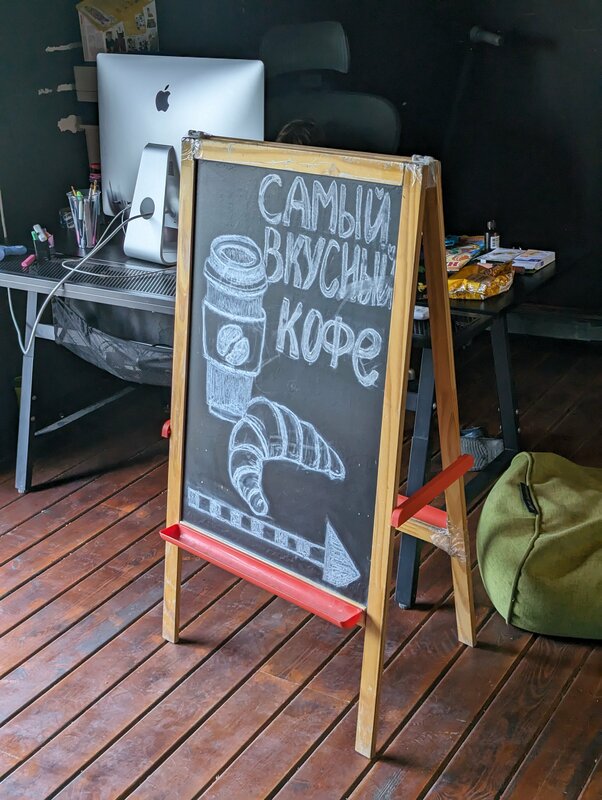 САМЫЙ
ВКУСНЫЙ
КОФЕ